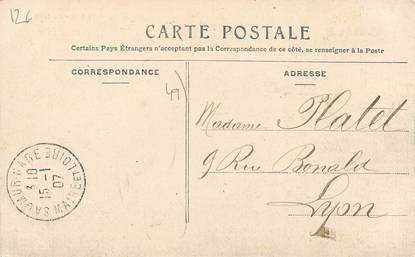 126
CARTE POSTALE
Certains Pays Étrangers n'acceptant pas la Correspondance de ce côté, se renseigner à la Poste
CORRESPONDANCE
ADRESSE
49
Madame Platet
9 Rue Bonald
Lyon
SAUMUR-GARE
MAINE ET LOIRE
3 10
15 -1
07